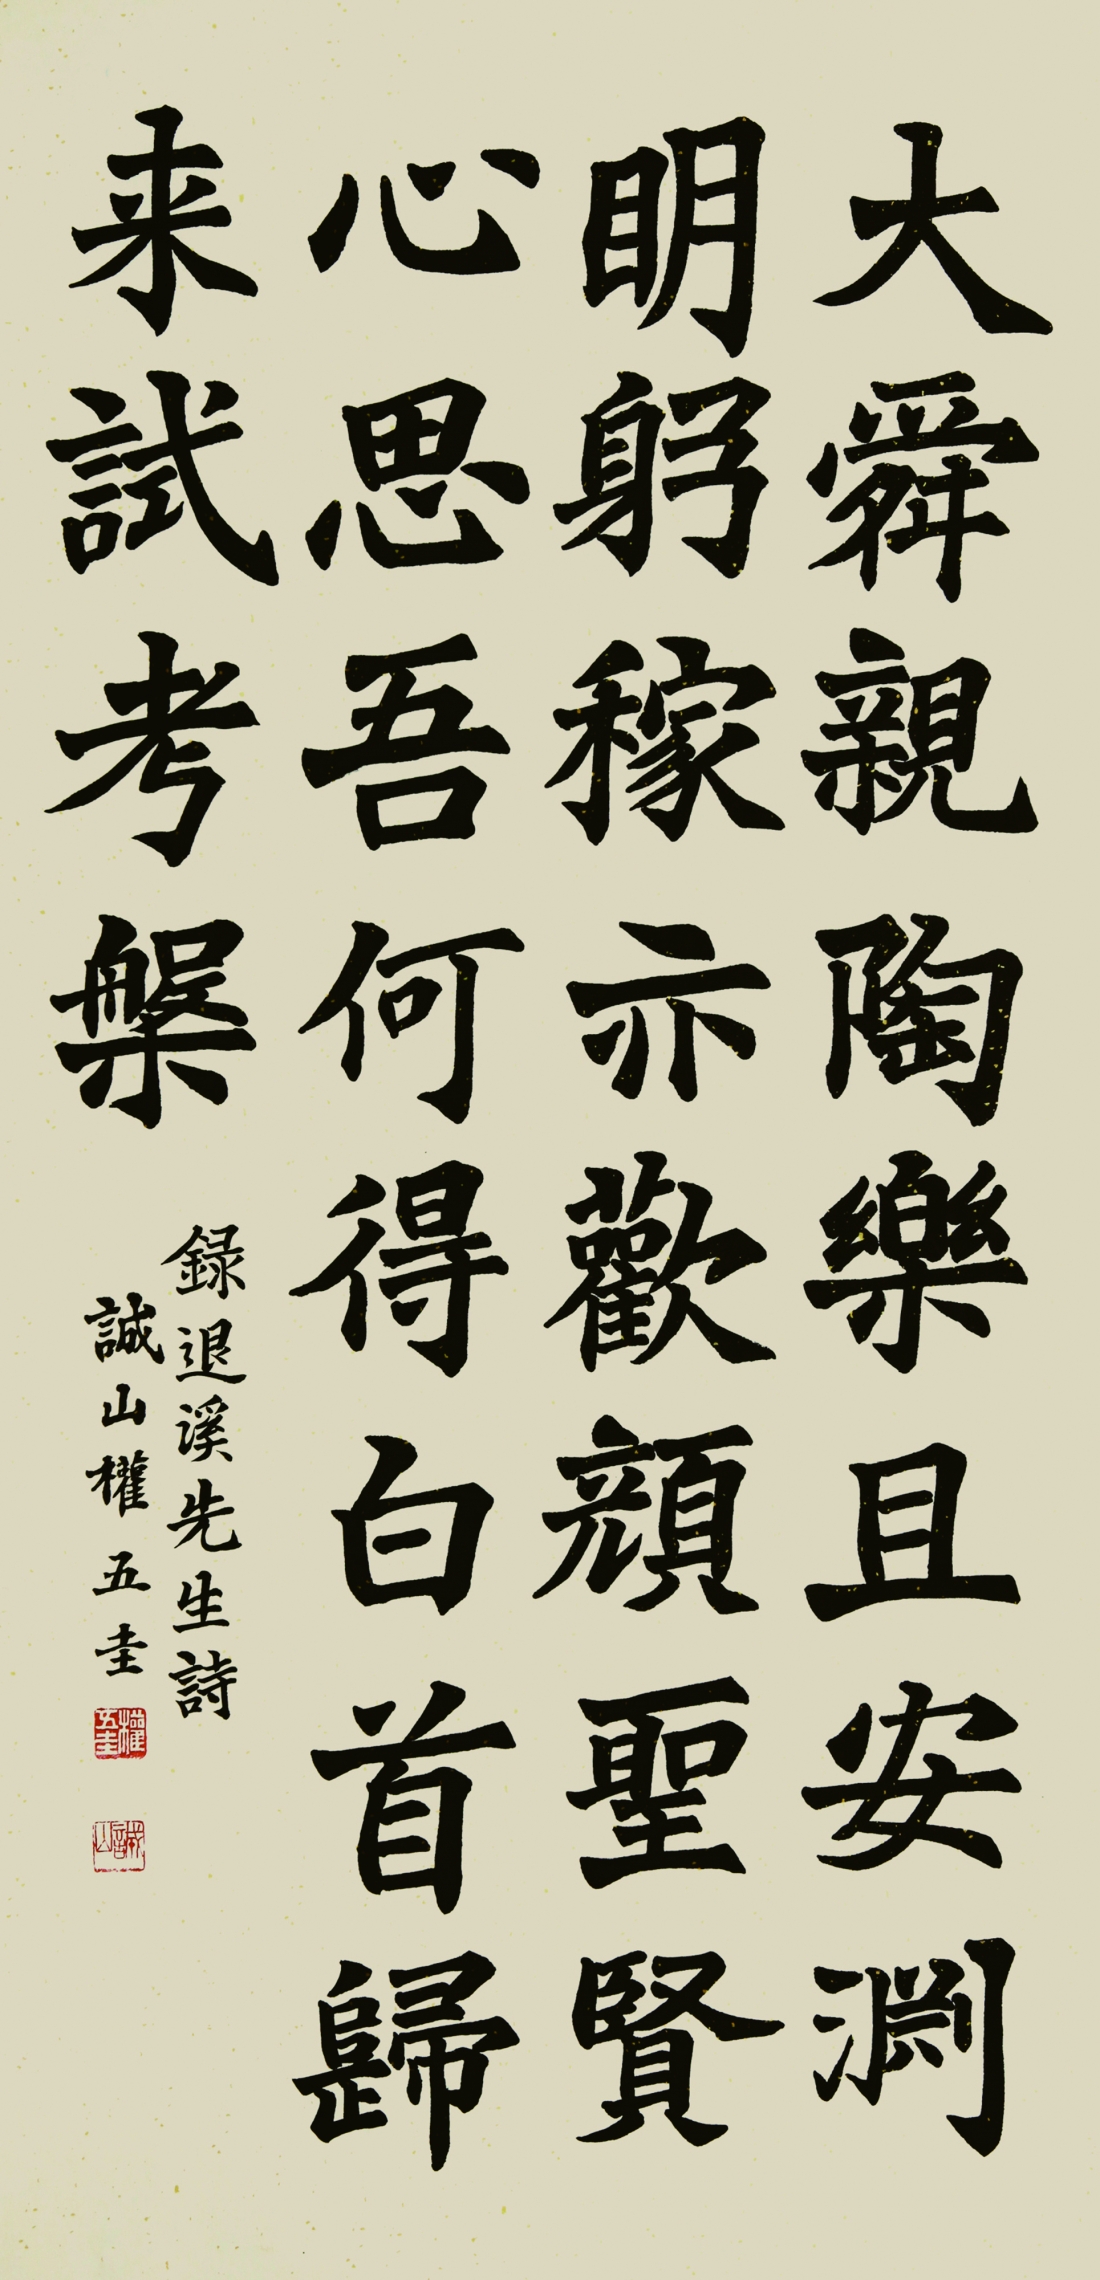 大舜親陶樂且安淵
明躬稼亦歡顔聖賢
心思吾何得白首歸
来試考槃
録退溪先生詩
誠山權五圭
權五圭
誠山